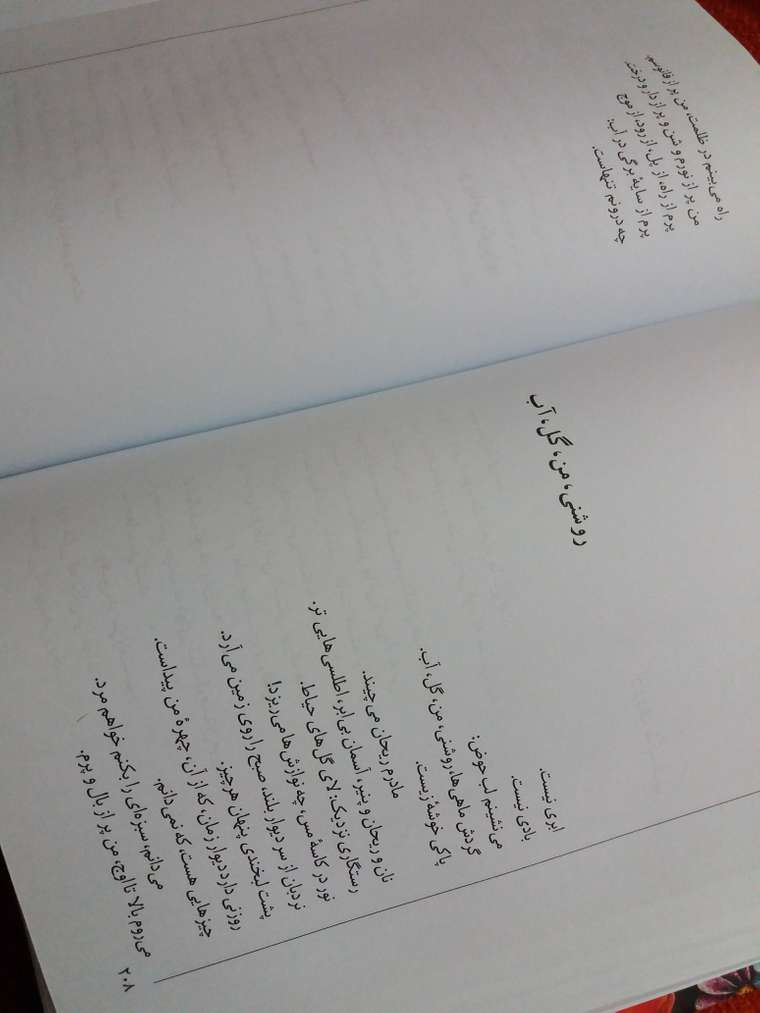 روشنی، من، گل، آب
ابری نیست.
بادی نیست.
می‌نشینم لب حوض:
گردش ماهی‌ها، روشنی، من، گل، آب.
پاکی خوشهٔ زیست.
مادرم ریحان می‌چیند.
نان و ریحان و پنیر، آسمان بی‌ابر، اطلسی‌هایی تر.
رستگاری نزدیک: لای گل‌های حیاط.
نور در کاسهٔ مس، چه نوازش‌ها می‌ریزد!
نردبان از سر دیوار بلند، صبح را روی زمین می‌آرد.
پشت لبخندی پنهان هرچیز.
روزنی دارد دیوار زمان، که از آن، چهرهٔ من پیداست.
چیزهایی هست، که نمی‌دانم.
می‌دانم، سبزه‌ای را بکنم خواهم مرد.
می‌روم بالا تا اوج، من پر از بال و پرم.
۲۰۸
راه می‌بینم در ظلمت، من پر از فانوسم.
من پر از نورم و شن و پر از دار و درخت.
پرم از راه، از پل، از رود، از موج
پرم از سایهٔ برگی در آب:
چه درونم تنهاست.